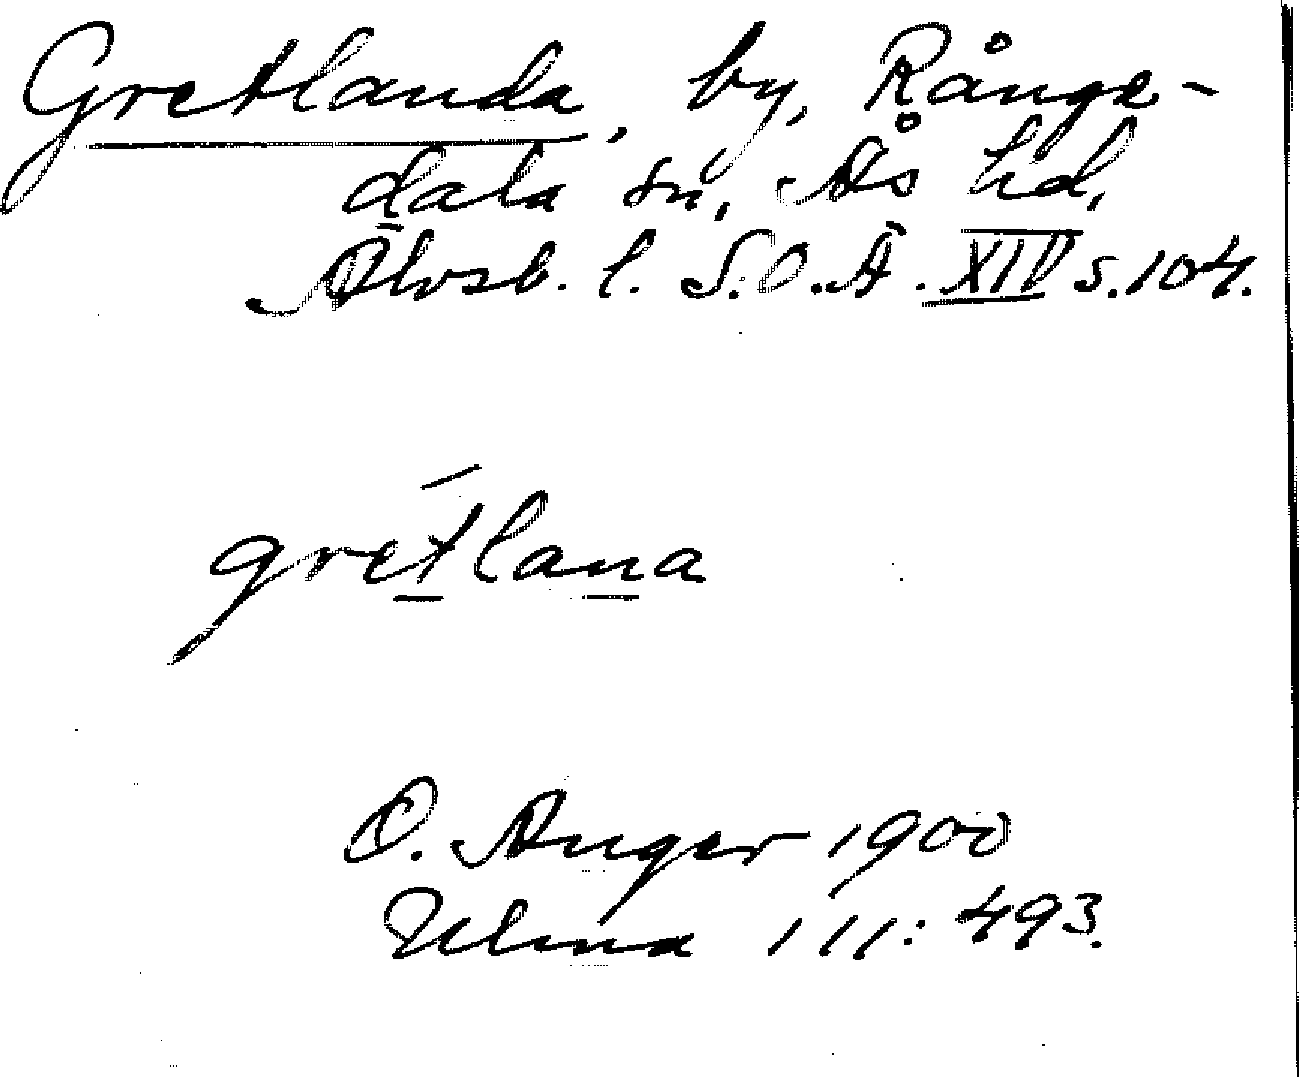 Gretlanda, by, Rånge-
dala sn, Ås hd,
Älvsb. l. S.O.Ä. XIV s. 104.
gretlana
O. Auger 1900
Ulma 111: 493.